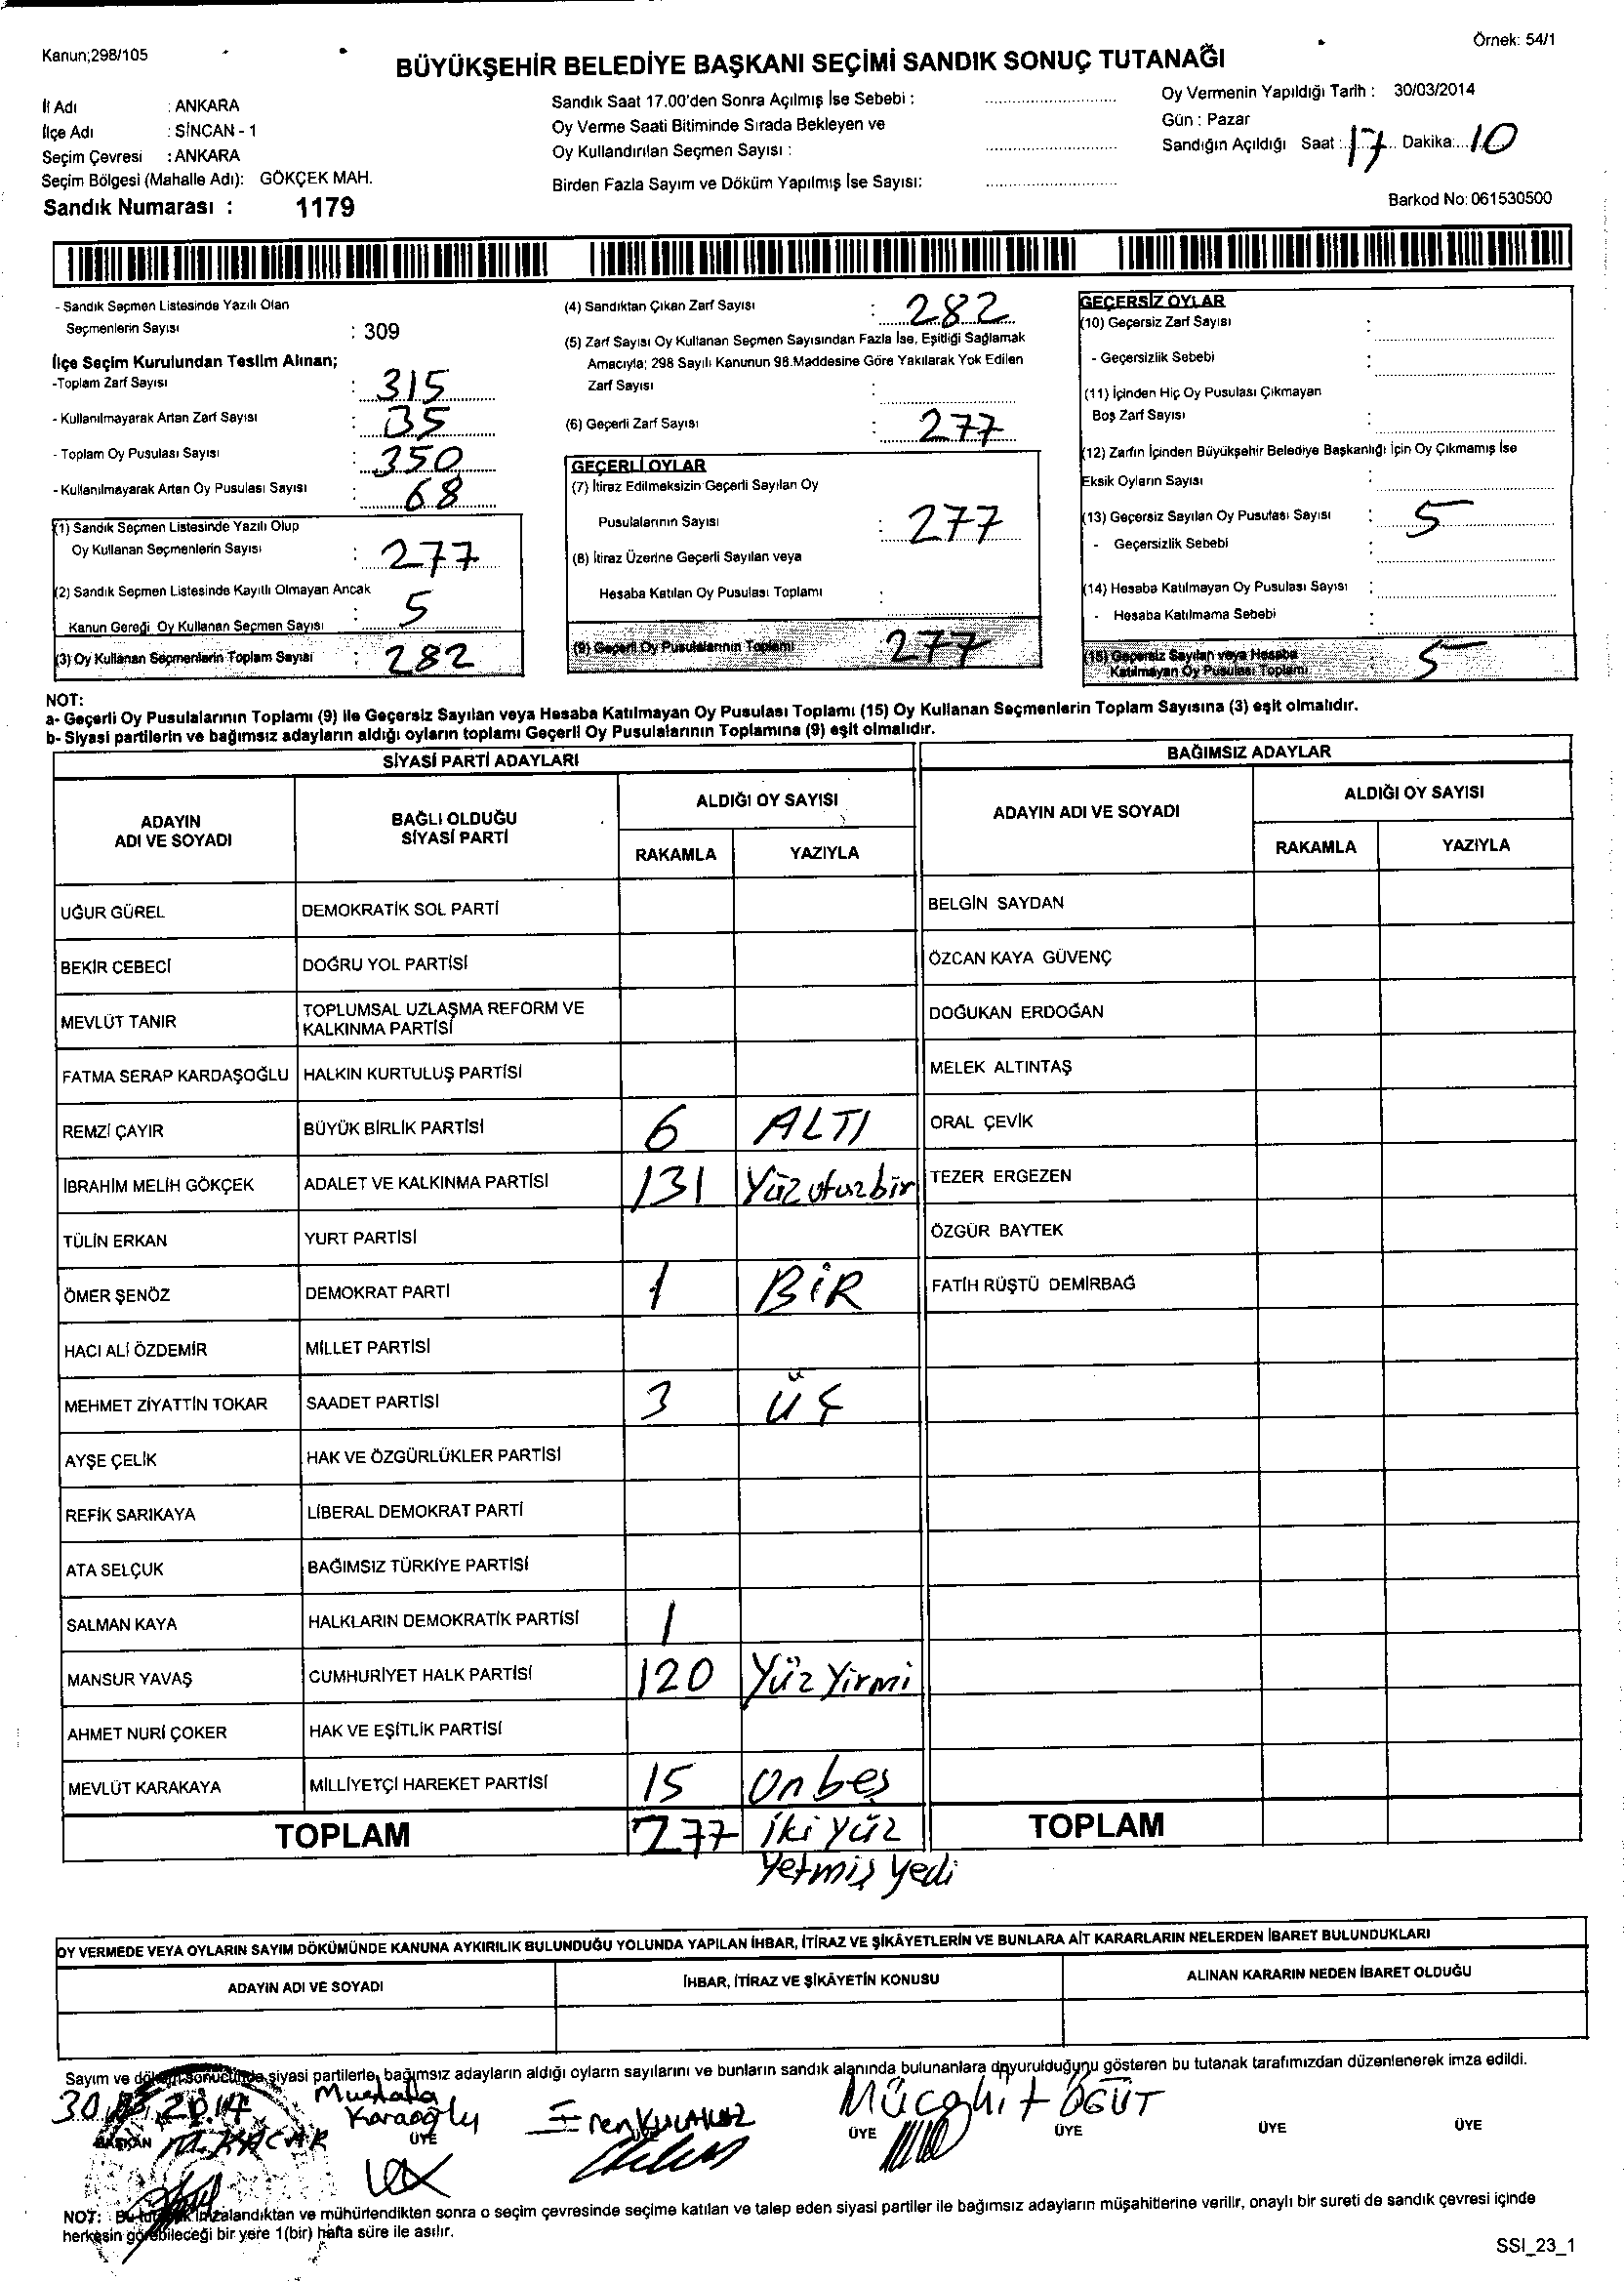 Kanun;298/105
Örnek: 54/1
BÜYÜKŞEHİR BELEDİYE BAŞKANI SEÇİMİ SANDIK SONUÇ TUTANAĞI
İl Adı : ANKARA
İlçe Adı : SİNCAN - 1
Seçim Çevresi : ANKARA
Seçim Bölgesi (Mahalle Adı): GÖKÇEK MAH.
Sandık Numarası : 1179
Sandık Saat 17.00'den Sonra Açılmış İse Sebebi :
Oy Verme Saati Bitiminde Sırada Bekleyen ve
Oy Kullandırılan Seçmen Sayısı :
Birden Fazla Sayım ve Döküm Yapılmış İse Sayısı:
Oy Vermenin Yapıldığı Tarih : 30/03/2014
Gün : Pazar
Sandığın Açıldığı Saat : 17 Dakika: 10
Barkod No: 061530500
- Sandık Seçmen Listesinde Yazılı Olan
Seçmenlerin Sayısı : 309
İlçe Seçim Kurulundan Teslim Alınan;
-Toplam Zarf Sayısı : 315
- Kullanılmayarak Artan Zarf Sayısı : 35
- Toplam Oy Pusulası Sayısı : 350
- Kullanılmayarak Artan Oy Pusulası Sayısı : 68
(1) Sandık Seçmen Listesinde Yazılı Olup
Oy Kullanan Seçmenlerin Sayısı : 277
(2) Sandık Seçmen Listesinde Kayıtlı Olmayan Ancak
Kanun Gereği Oy Kullanan Seçmen Sayısı : 5
(3) Oy Kullanan Seçmenlerin Toplam Sayısı : 282
(4) Sandıktan Çıkan Zarf Sayısı : 282
(5) Zarf Sayısı Oy Kullanan Seçmen Sayısından Fazla İse, Eşitliği Sağlamak
Amacıyla; 298 Sayılı Kanunun 98.Maddesine Göre Yakılarak Yok Edilen
Zarf Sayısı :
(6) Geçerli Zarf Sayısı : 277
GEÇERLİ OYLAR
(7) İtiraz Edilmeksizin Geçerli Sayılan Oy
Pusulalarının Sayısı : 277
(8) İtiraz Üzerine Geçerli Sayılan veya
Hesaba Katılan Oy Pusulası Toplamı :
(9) Geçerli Oy Pusulalarının Toplamı 277
GEÇERSİZ OYLAR
(10) Geçersiz Zarf Sayısı :
- Geçersizlik Sebebi :
(11) İçinden Hiç Oy Pusulası Çıkmayan
Boş Zarf Sayısı :
(12) Zarfın İçinden Büyükşehir Belediye Başkanlığı İçin Oy Çıkmamış İse
Eksik Oyların Sayısı :
(13) Geçersiz Sayılan Oy Pusulası Sayısı : 5
- Geçersizlik Sebebi :
(14) Hesaba Katılmayan Oy Pusulası Sayısı :
- Hesaba Katılmama Sebebi :
(15) Geçersiz Sayılan veya Hesaba
Katılmayan Oy Pusulası Toplamı : 5
NOT:
a- Geçerli Oy Pusulalarının Toplamı (9) ile Geçersiz Sayılan veya Hesaba Katılmayan Oy Pusulası Toplamı (15) Oy Kullanan Seçmenlerin Toplam Sayısına (3) eşit olmalıdır.
b- Siyasi partilerin ve bağımsız adayların aldığı oyların toplamı Geçerli Oy Pusulalarının Toplamına (9) eşit olmalıdır.
SİYASİ PARTİ ADAYLARI
BAĞIMSIZ ADAYLAR
ADAYIN
ADI VE SOYADI
BAĞLI OLDUĞU
SİYASİ PARTİ
ALDIĞI OY SAYISI
RAKAMLA YAZIYLA
ADAYIN ADI VE SOYADI
ALDIĞI OY SAYISI
RAKAMLA YAZIYLA
UĞUR GÜREL DEMOKRATİK SOL PARTİ BELGİN SAYDAN
BEKİR CEBECİ DOĞRU YOL PARTİSİ ÖZCAN KAYA GÜVENÇ
MEVLÜT TANIR TOPLUMSAL UZLAŞMA REFORM VE
KALKINMA PARTİSİ DOĞUKAN ERDOĞAN
FATMA SERAP KARDAŞOĞLU HALKIN KURTULUŞ PARTİSİ MELEK ALTINTAŞ
REMZİ ÇAYIR BÜYÜK BİRLİK PARTİSİ 6 ALTI ORAL ÇEVİK
İBRAHİM MELİH GÖKÇEK ADALET VE KALKINMA PARTİSİ 131 Yüzotuzbir TEZER ERGEZEN
TÜLİN ERKAN YURT PARTİSİ ÖZGÜR BAYTEK
ÖMER ŞENÖZ DEMOKRAT PARTİ 1 BİR FATİH RÜŞTÜ DEMİRBAĞ
HACI ALİ ÖZDEMİR MİLLET PARTİSİ
MEHMET ZİYATTİN TOKAR SAADET PARTİSİ 3 ÜÇ
AYŞE ÇELİK HAK VE ÖZGÜRLÜKLER PARTİSİ
REFİK SARIKAYA LİBERAL DEMOKRAT PARTİ
ATA SELÇUK BAĞIMSIZ TÜRKİYE PARTİSİ
SALMAN KAYA HALKLARIN DEMOKRATİK PARTİSİ 1
MANSUR YAVAŞ CUMHURİYET HALK PARTİSİ 120 Yüz Yirmi
AHMET NURİ ÇOKER HAK VE EŞİTLİK PARTİSİ
MEVLÜT KARAKAYA MİLLİYETÇİ HAREKET PARTİSİ 15 Onbeş
TOPLAM 277 İki Yüz TOPLAM
Yetmiş Yedi
OY VERMEDE VEYA OYLARIN SAYIM DÖKÜMÜNDE KANUNA AYKIRILIK BULUNDUĞU YOLUNDA YAPILAN İHBAR, İTİRAZ VE ŞİKÂYETLERİN VE BUNLARA AİT KARARLARIN NELERDEN İBARET BULUNDUKLARI
ADAYIN ADI VE SOYADI İHBAR, İTİRAZ VE ŞİKÂYETİN KONUSU ALINAN KARARIN NEDEN İBARET OLDUĞU
Sayım ve döküm sonucunda siyasi partilerle, bağımsız adayların aldığı oyların sayılarını ve bunların sandık alanında bulunanlara duyurulduğunu gösteren bu tutanak tarafımızdan düzenlenerek imza edildi.
30.03.2014 Mustafa
Karaoğlu Eren Mücahit ÖĞÜT
BAŞKAN ÜYE ÜYE ÜYE ÜYE ÜYE
NOT: Bu tutanak imzalandıktan ve mühürlendikten sonra o seçim çevresinde seçime katılan ve talep eden siyasi partiler ile bağımsız adayların müşahitlerine verilir, onaylı bir sureti de sandık çevresi içinde
herkesin görebileceği bir yere 1(bir) hafta süre ile asılır.
SSI_23_1